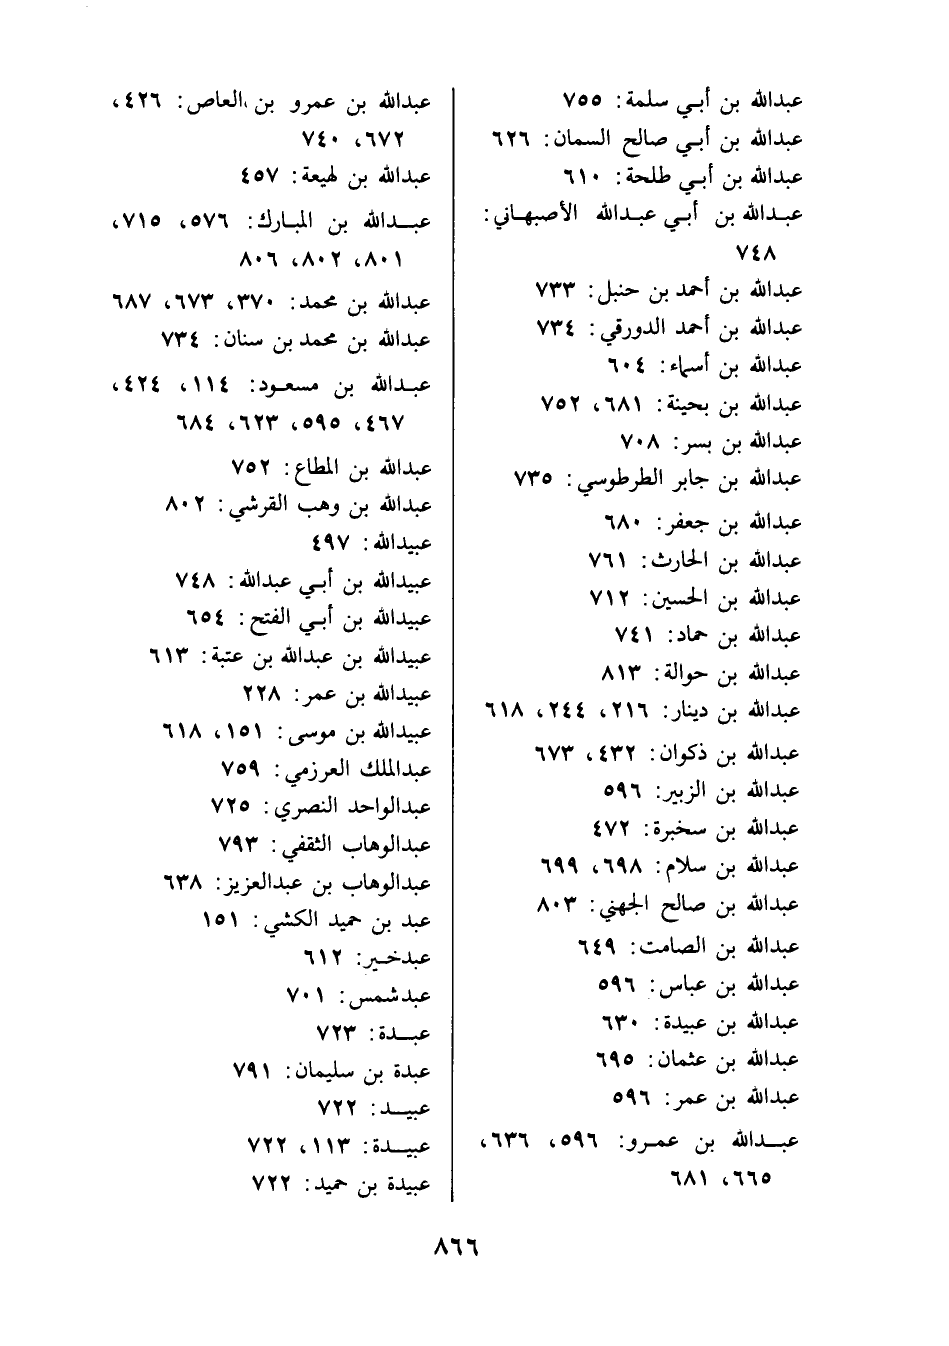 عبدالله بن أبي سلمة: ٧٥٥
عبدالله بن أبي صالح السمان: ٦٢٦
عبدالله بن أبي طلحة: ٦١٠
عبدالله بن أبي عبدالله الأصبهاني:
٧٤٨
عبدالله بن أحمد بن حنبل: ٧٣٣
عبدالله بن أحمد الدورقي: ٧٣٤
عبدالله بن أسماء: ٦٠٤
عبدالله بن بحينة: ٦٨١، ٧٥٢
عبدالله بن بسر: ٧٠٨
عبدالله بن جابر الطرطوسي: ٧٣٥
عبدالله بن جعفر: ٦٨٠
عبدالله بن الحارث: ٧٦١
عبدالله بن الحسين: ٧١٢
عبدالله بن حماد: ٧٤١
عبدالله بن حوالة: ٨١٣
عبدالله بن دينار: ٢١٦، ٢٤٤، ٦١٨
عبدالله بن ذكوان: ٤٣٢، ٦٧٣
عبدالله بن الزبير: ٥٩٦
عبدالله بن سخبرة: ٤٧٢
عبدالله بن سلام: ٦٩٨، ٦٩٩
عبدالله بن صالح الجهني: ٨٠٣
عبدالله بن الصامت: ٦٤٩
عبدالله بن عباس: ٥٩٦
عبدالله بن عبيدة: ٦٣٠
عبدالله بن عثمان: ٦٩٥
عبدالله بن عمر: ٥٩٦
عبدالله بن عمرو: ٥٩٦، ٦٣٦،
٦٦٥، ٦٨١
عبدالله بن عمرو بن العاص: ٤٢٦،
٦٧٢، ٧٤٠
عبدالله بن لهيعة: ٤٥٧
عبدالله بن المبارك: ٥٧٦، ٧١٥،
٨٠١، ٨٠٢، ٨٠٦
عبدالله بن محمد: ٣٧٠، ٦٧٣، ٦٨٧
عبدالله بن محمد بن سنان: ٧٣٤
عبدالله بن مسعود: ١١٤، ٤٢٤،
٤٦٧، ٥٩٥، ٦٢٣، ٦٨٤
عبدالله بن المطاع: ٧٥٢
عبدالله بن وهب القرشي: ٨٠٢
عبيدالله: ٤٩٧
عبيدالله بن أبي عبدالله: ٧٤٨
عبيدالله بن أبي الفتح: ٦٥٤
عبيدالله بن عبدالله بن عتبة: ٦١٣
عبيدالله بن عمر: ٢٢٨
عبيدالله بن موسى: ١٥١، ٦١٨
عبدالملك العرزمي: ٧٥٩
عبدالواحد النصري: ٧٢٥
عبدالوهاب الثقفي: ٧٩٣
عبدالوهاب بن عبدالعزيز: ٦٣٨
عبد بن حميد الكشي: ١٥١
عبدخير: ٦١٢
عبدشمس: ٧٠١
عبدة: ٧٢٣
عبدة بن سليمان: ٧٩١
عبيد: ٧٢٢
عبيدة: ١١٣، ٧٢٢
عبيدة بن حميد: ٧٢٢
٨٦٦